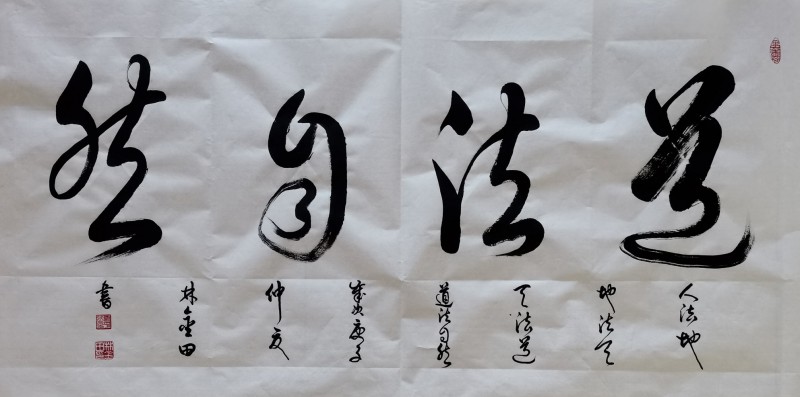 道法自然
人法地
地法天
天法道
道法自然
岁次庚子
仲夏
林金田
書